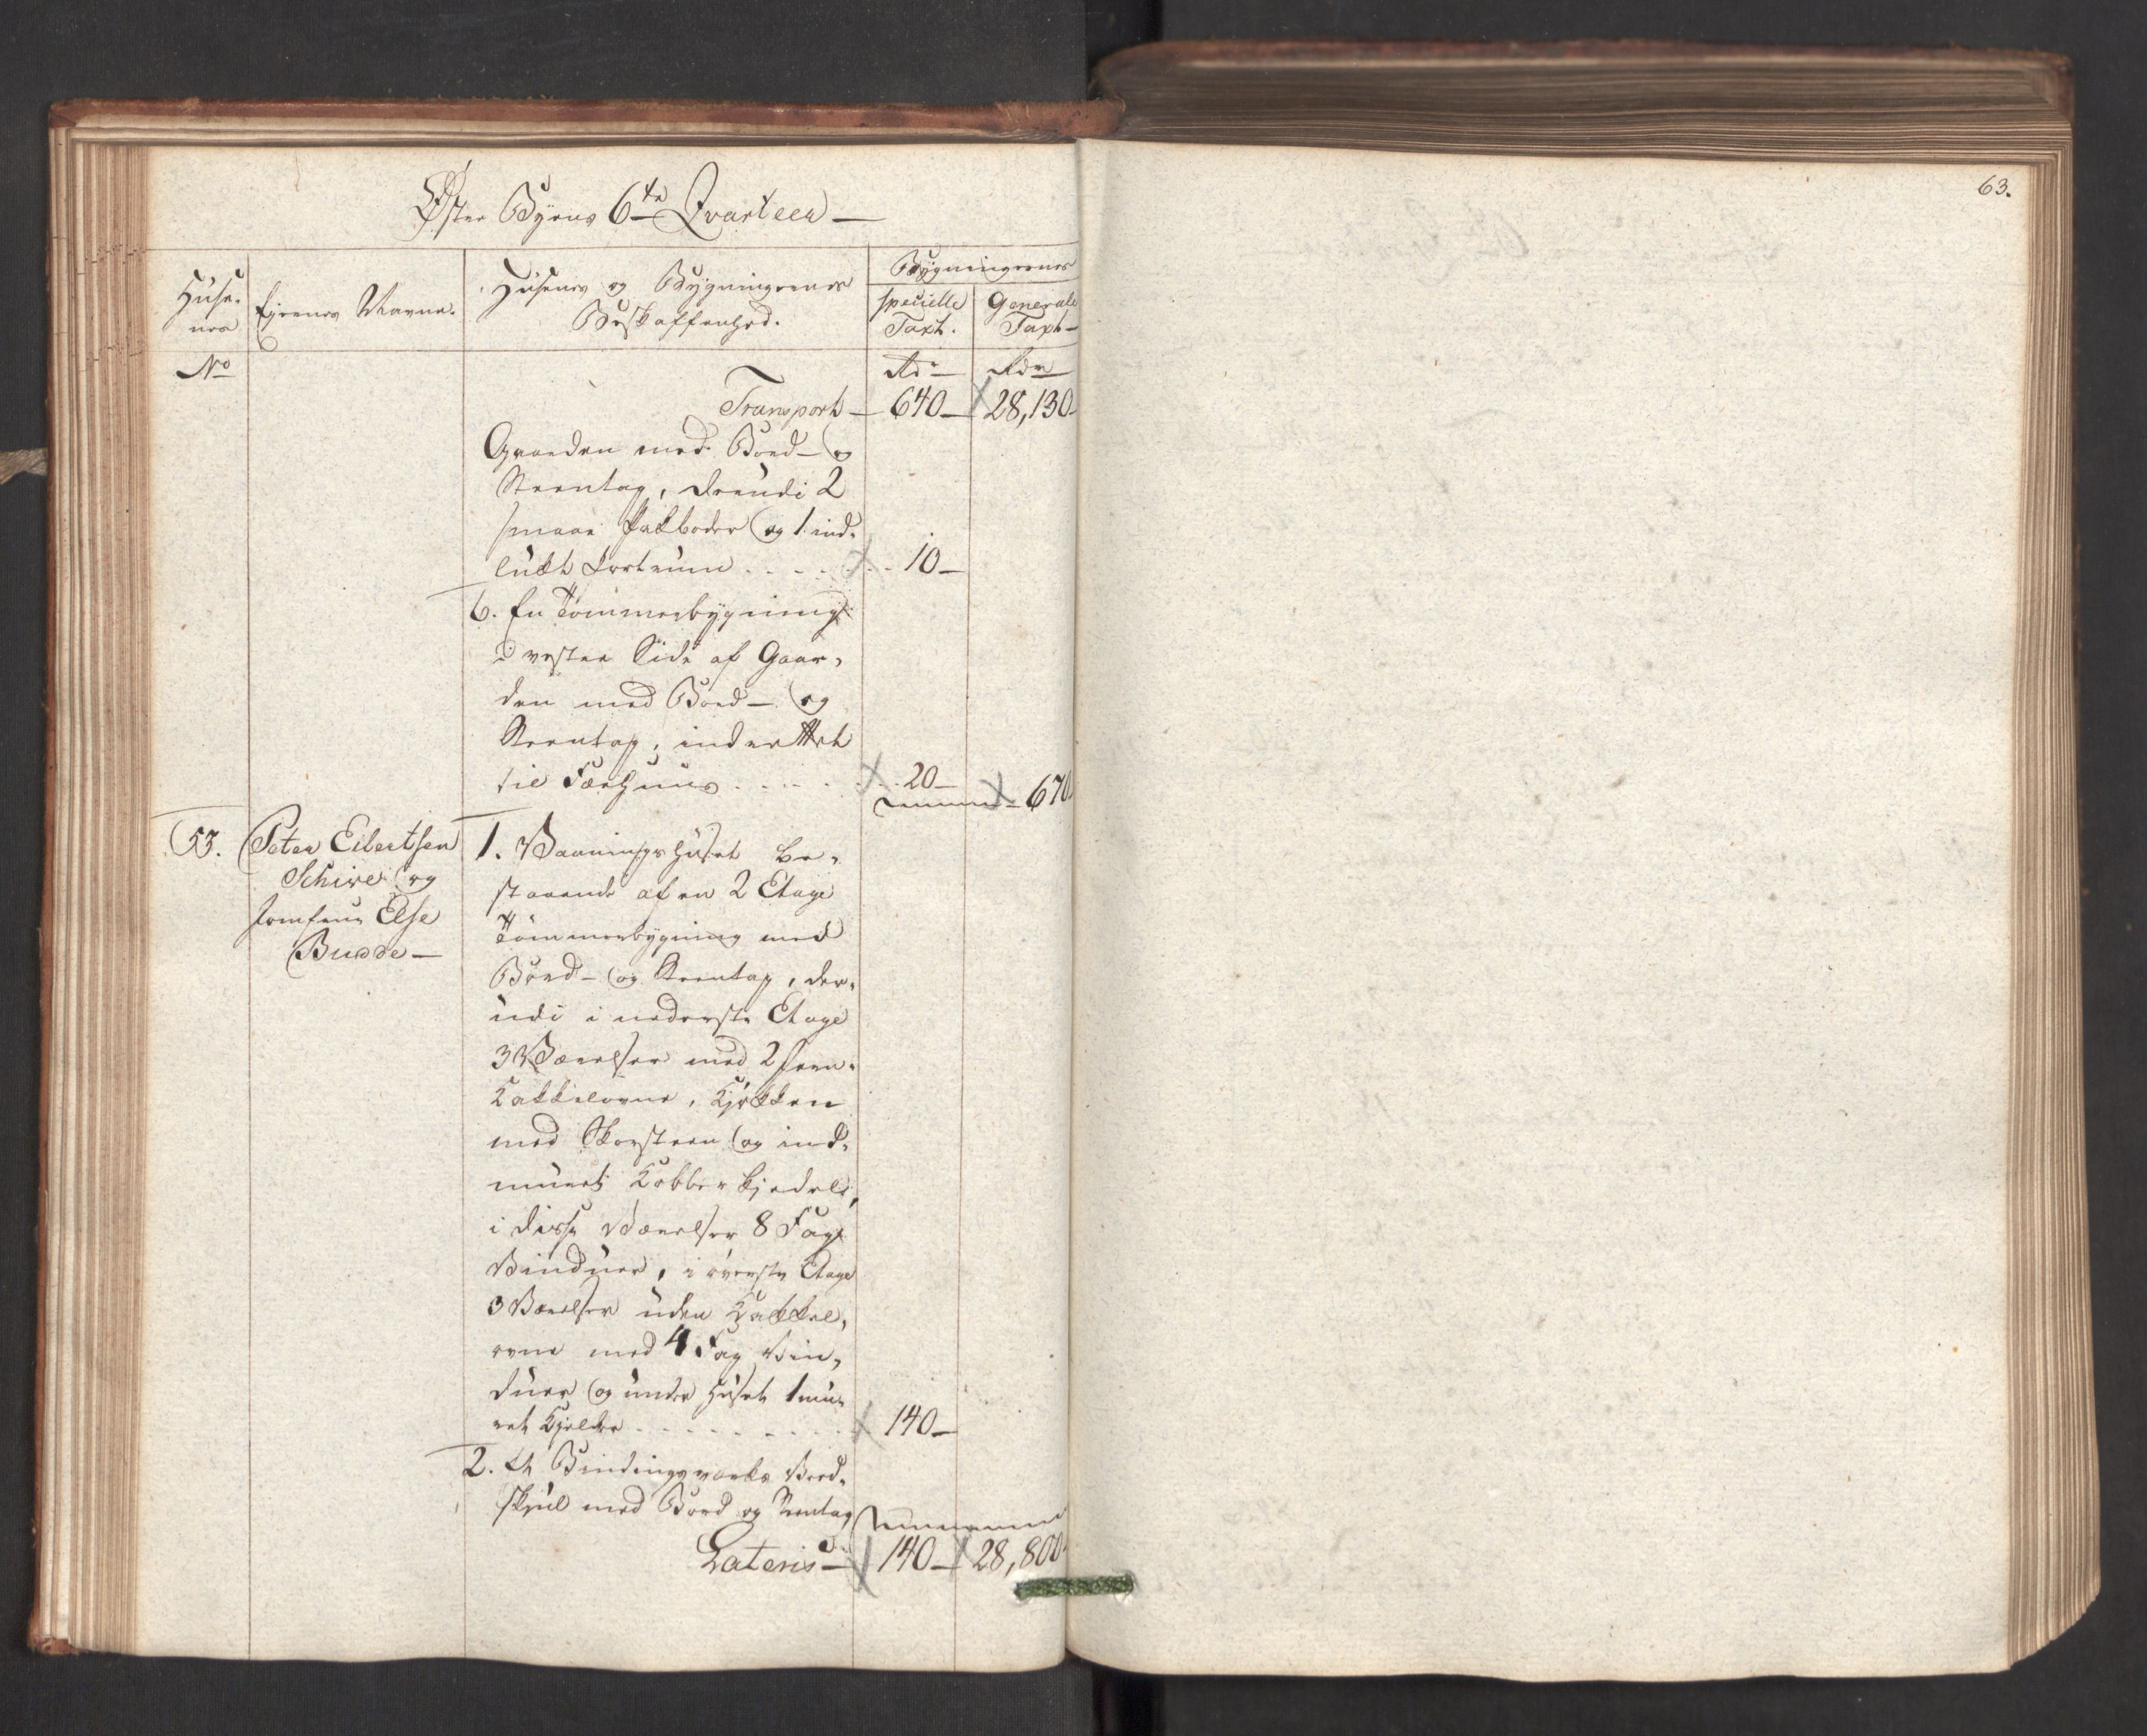 63.
Øster Byens 6te Qvarteer
Huse-
nes
Ejernes Navne.
Husenes og Bygningernes
Beskaffenhed.
Bygningernes
specielle
Taxt.
Generale
Taxt
No
Rdr
Rdr
Transport 640 28,130
Gaarden med Bord- og
Steentag, derudi 2
smaae Pakboder og 1 ind-
lukt Locterum 10
6. En Tømmerbygning
i vester Side af Gaar-
den med Bord- og
Steentag, indrettet
til Fæehuus 20
670
53. Peter Eilertsen
Schive og
Jomfrue Else
Budde
1. Vaaningshuset be-
staaende af en 2 Etage
Tømmerbygning med
Bord- og Steentag, der-
udi i nederste Etage
3 Værelser med 2 Jern-
Kakkelovne, Kjøkken
med Skorsteen og ind-
muret Kobberkjedel,
i disse Værelser 8 Fag
Vinduer, i øverste Etage
3 Værelser uden Kakkel-
ovne med 4 Fag Vin-
duer og under Huset 1 mu-
ret Kjelder 140
2. Et Bindingsverks Ved-
skjul med Bord og Steentag
Lateris 140 28,800